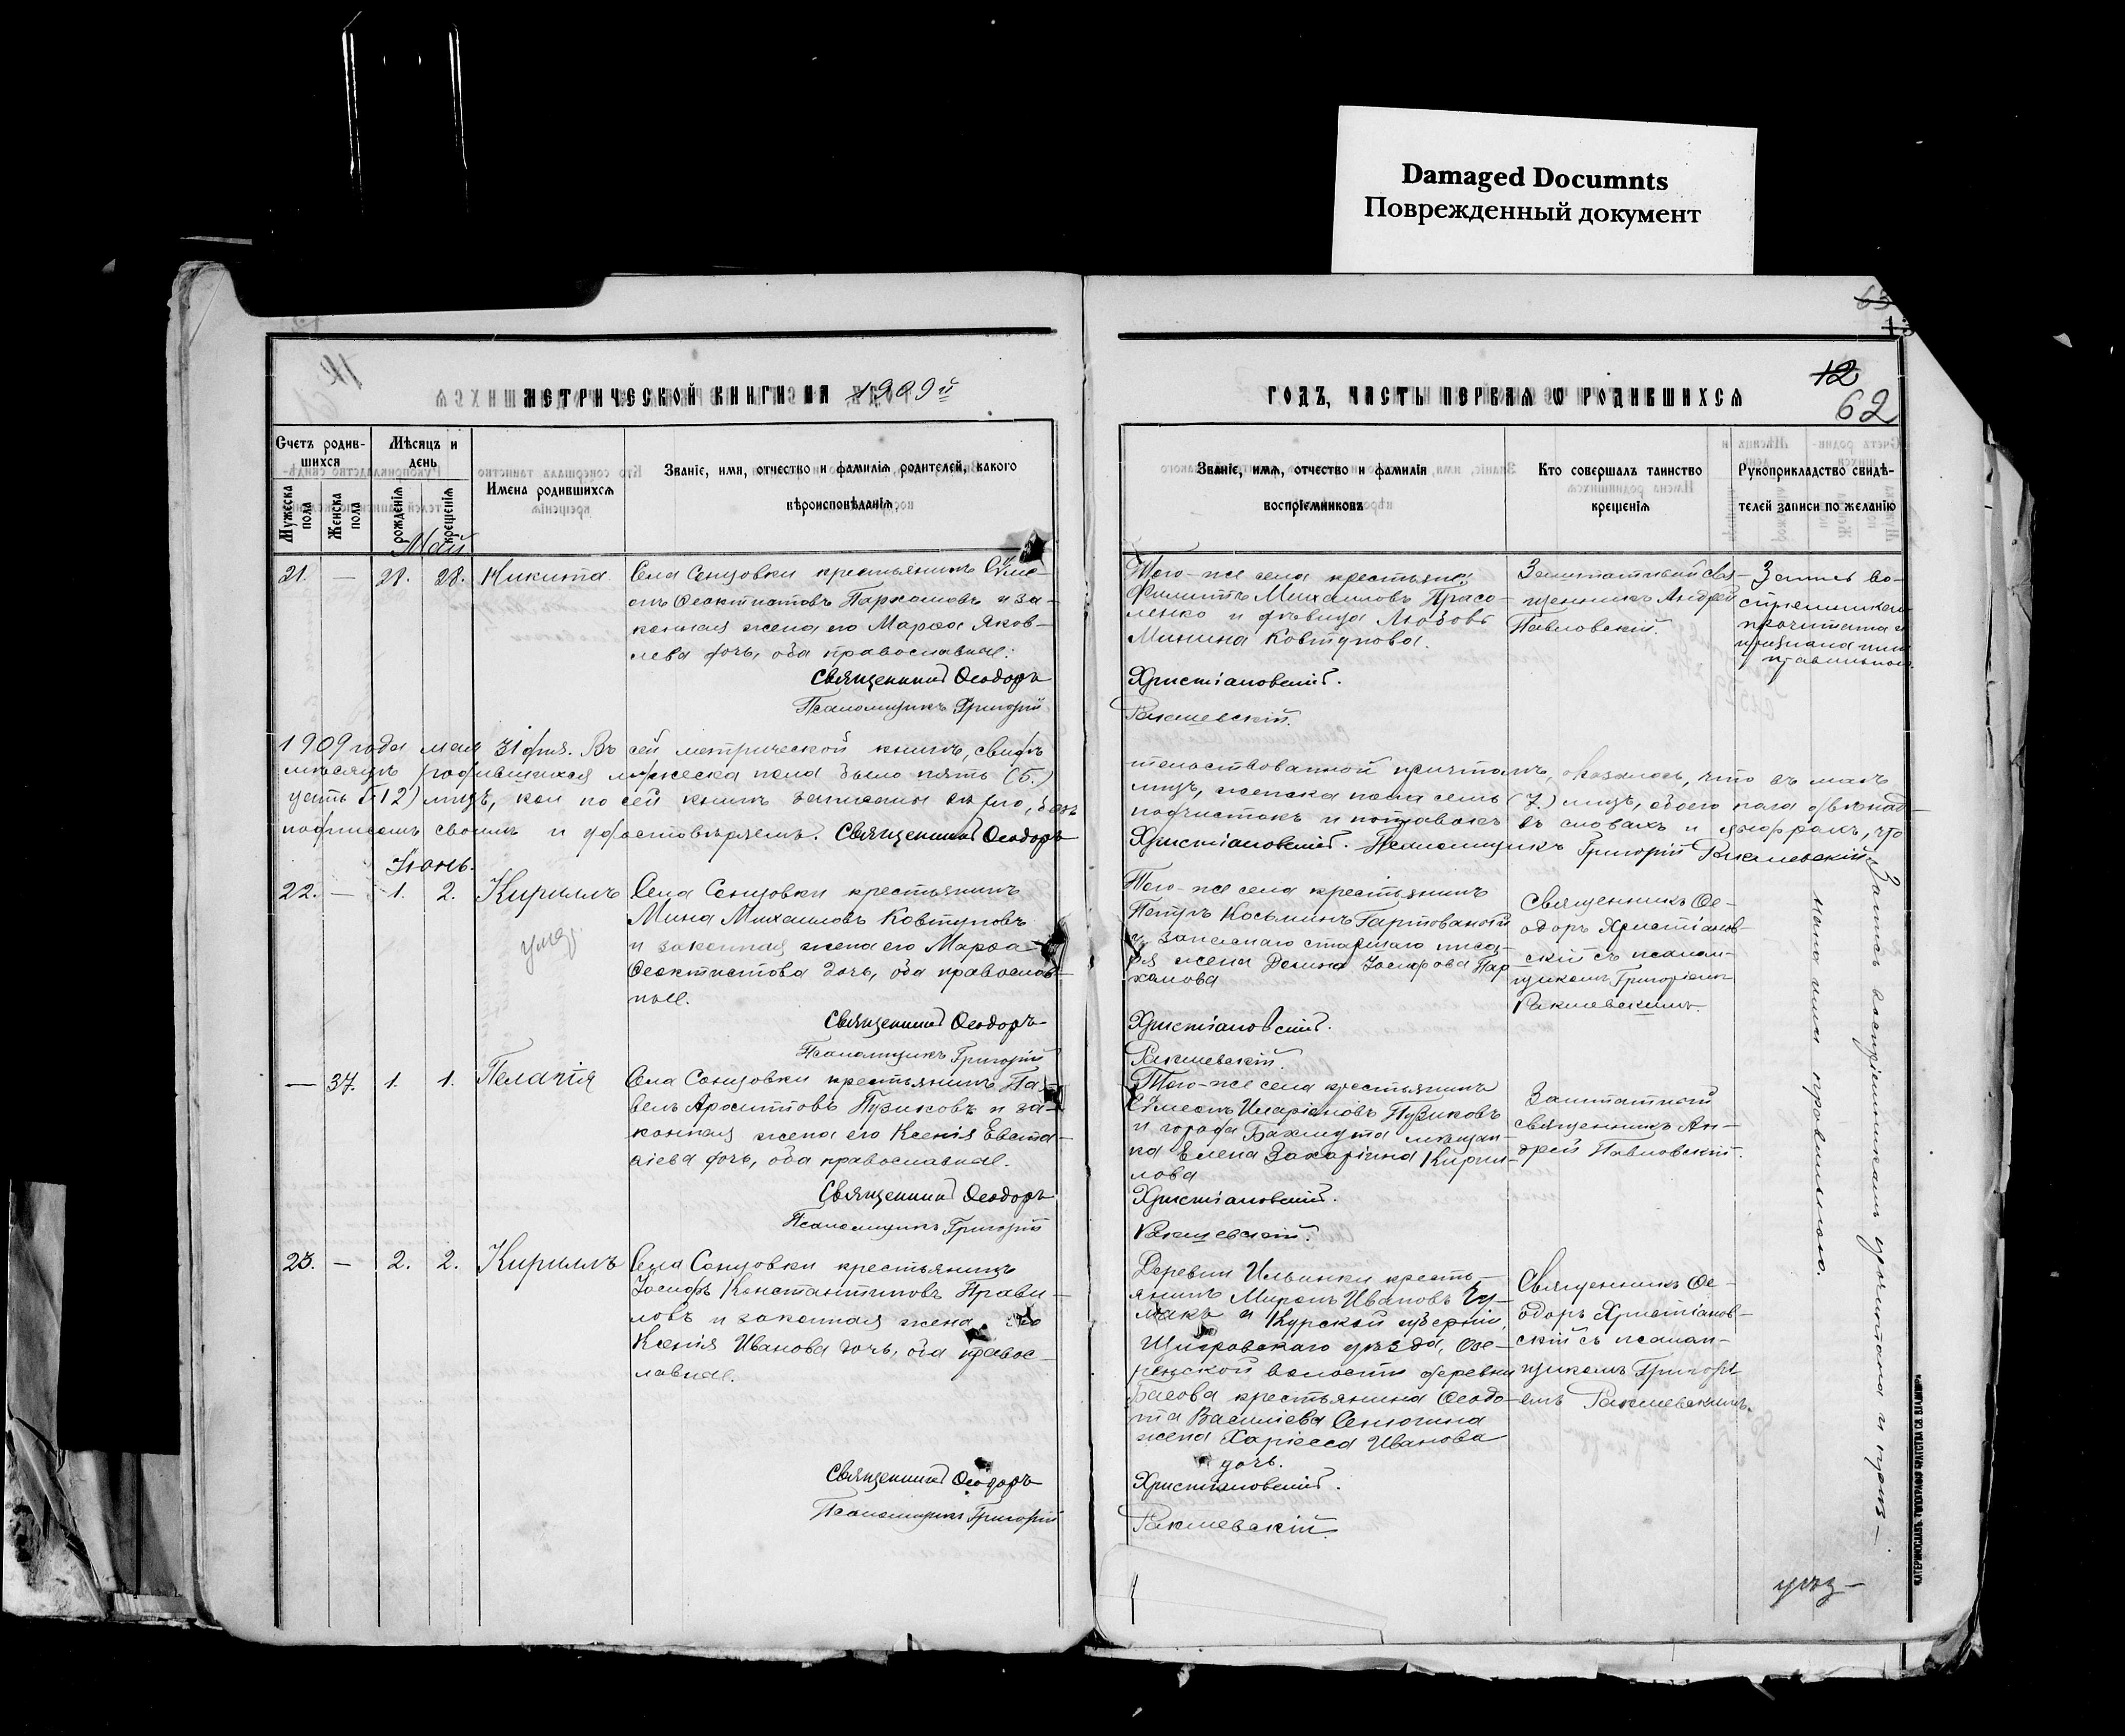 Damaged Documnts
Поврежденный документ
63
13
12
62
МЕТРИЧЕСКОЙ КНИГИ НА 1909й
ГОДЪ, ЧАСТЬ ПЕРВАЯ Ѡ РОДИВШИХСЯ
Счетъ родив-
шихся
Мужеска пола
Женска пола
Мѣсяцъ и
день
рожденія
крещенія
Имена родившихся
Званіе, имя, отчество и фамилія родителей, какого
вѣроисповѣданія
Званіе, имя, отчество и фамилія
воспріемниковъ
Кто совершалъ таинство
крещенія
Рукоприкладство свидѣ-
телей записи по желанію
Май
21. — 28. Никита
Села Сонцовки крестьянинъ Сѵме-
онъ Ѳеоктистовъ Пархомовъ и за-
конная жена его Марѳа Яков-
лева дочь, оба православные.
Священникъ Ѳеодоръ
Псаломщикъ Григорій
Того-же села крестьяне:
Филиппъ Михаиловъ Прасо-
ленко и дѣвица Любовь
Минина Ковтунова.
Христіановскій.
Ракшевскій.
Заштатный свя-
щенникъ Андрей
Павловскій.
Запись во-
спріемникам
прочитана и
признана ими
правильною.
1909 года мая 31 дня. Въ сей метрической книгѣ, свидѣ-
тельствованной причтомъ, оказалось, что въ маѣ
мѣсяцѣ родившихся мужеска пола было пять (5.)
лицъ, женска пола семь (7.) лицъ, обоего пола двѣнад-
цать (12) лицъ, кои по сей книгѣ записаны вѣрно, безъ
подчистокъ и поправокъ въ словахъ и цыфрахъ, что
подписомъ своимъ и удостовѣряемъ. Священникъ Ѳеодоръ
Христіановскій. Псаломщикъ Григорій Ракшевскій.
Іюнь.
22. — 1. 2. Кириллъ
умер.
Села Сонцовки крестьянинъ
Мина Михаиловъ Ковтуновъ
и законная жена его Марѳа
Ѳеоктистова дочь, оба православ-
ные.
Священникъ Ѳеодоръ
Псаломщикъ Григорій
Того-же села крестьянинъ
Петръ Косьминъ Гартованый
и запаснаго старшаго писа-
ря жена Домна Іосифова Пар-
хомова
Христіановскій.
Ракшевскій.
Священникъ Ѳе-
одоръ Христіанов-
скій съ псалом-
щикомъ Григоріемъ
Ракшевскимъ.
— 37. 1. 1. Пелагія
Села Сонцовки крестьянинъ Па-
велъ Пузиковъ и за-
конная жена его Ксенія Евста-
ѳіева дочь, оба православные.
Священникъ Ѳеодоръ
Псаломщикъ Григорій
Того-же села крестьянинъ
Сѵмеонъ Иларіоновъ Пузиковъ
и города Бахмута мѣщан-
ка Елена Захаріина Кирил-
лова
Христіановскій.
Ракшевскій.
Заштатный
священникъ Ан-
дрей Павловскій.
23. — 2. 2. Кириллъ
Села Сонцовки крестьянинъ
Іосифъ Константиновъ Прави-
ловъ и законная жена его
Ксенія Иванова дочь, оба правос-
лавные.
Священникъ Ѳеодоръ
Псаломщикъ Григорій
Деревни Ильинки кресть-
янинъ Миронъ Ивановъ Чу-
макъ и Курской губерніи,
Щигровскаго уѣзда,
волости деревни
Басова крестьянина Ѳеодо-
та Васильева
жена Хариесса Иванова
дочь.
Христіановскій.
Ракшевскій.
Священникъ Ѳе-
одоръ Христіанов-
скій съ псалом-
щикомъ Григорі-
емъ Ракшевскимъ.
Запись воспріемникамъ прочитана и приз-
нана ими правильною.
уѣз-
ЕКАТЕРИНОСЛАВЪ. ТИПОГРАФІЯ БРАТСТВА СВ. ВЛАДИМІРА